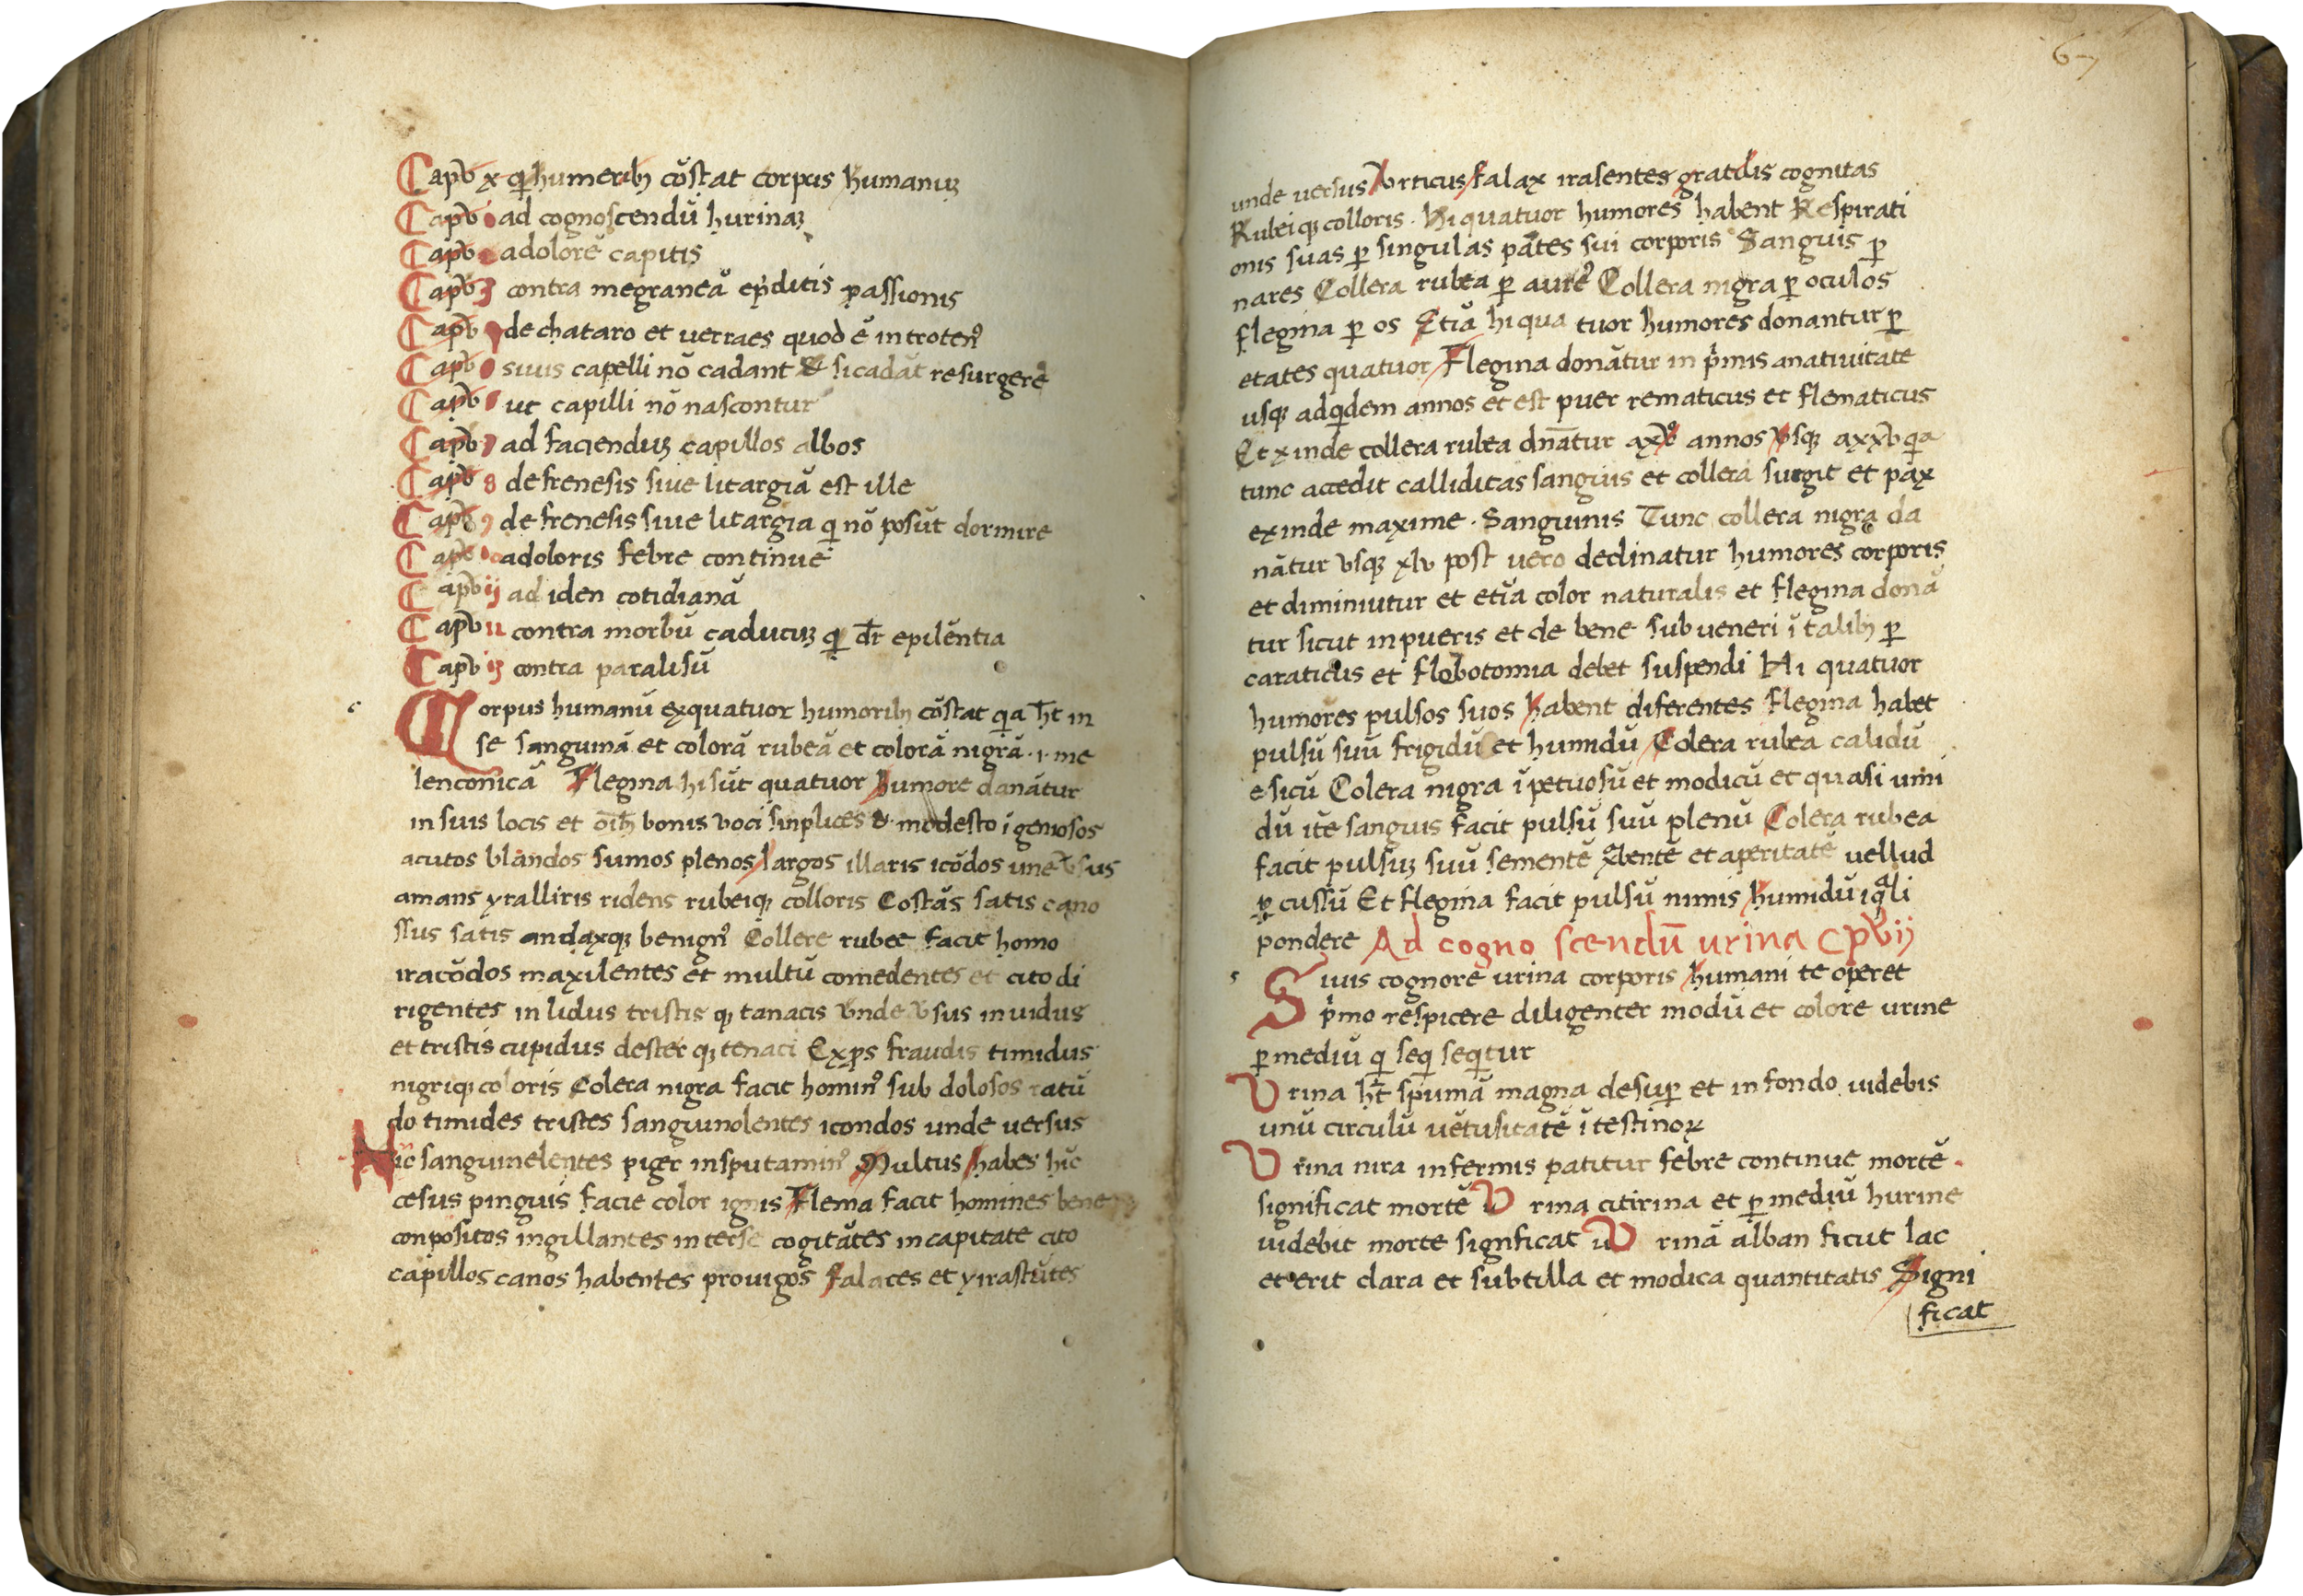 Capỡ x qi humerib; cõstat corpus humanuȝ
Capỡ ad cognoscendũ hurinaȝ
Capỡ adolorẽ capitis
Capỡ 3 contra megraneã epiditis passionis
Capỡ de chataro et uerraes quod ẽ introten⁹
Capỡ siuis capelli nõ cadant & si cadãt resurgere
Capỡ ut capilli nõ nascontur
Capỡ 7 ad facienduȝ capillos albos
Capỡ 8 defrenesis siue litargiã est ille
Capỡ 9 de frenesis siue litargia qi nõ posũt dormire
Capỡ 10 adoloris febre continue
Capỡ ij ad iden cotidianã
Capỡ 12 contra morbũ caducuȝ qi dr̃ epilẽntia
Capỡ i3 contra paralisũ
Corpus humanũ exquatuor humorib; cõstat qa hr̃t in
se sanguinã et colorã rubeã et colorã nigrã · i · me
lenconicã Flegina hi sũt quatuor humore danãtur
in suis locis et oĩb; bonis voci sinplices & modesto ĩgeniosos
acutos blandos sumos plenos largos illaris icõdos une v̉sus
amans yralliris ridens rubeiqȝ colloris Costãs satis cano
ssus satis andaxqȝ benign⁹ Collere rubee facit homo
iracõdos maxilentes et multũ comedentes et cito di
rigentes in lidus tristis qȝ tanacis vnde v̉sus inuidus
et tristis cupidus dester qȝ tenaci Exps fraudis timidus
nigriqȝ coloris Colera nigra facit homin⁹ sub dolosos ratũ
do timides tristes sanguinolentes icondos unde uersus
Hic sanguinelentes piger insputamin⁹ Multus habes hic
cesus pinguis facie color ignis Flema facit homines bene
conpositos ingillantes interse cogitãtes incapitate cito
capillos canos habentes prouigos falaces et yirastũtes
67
unde uersus Vrticus falax irasentes gratdis cognitas
Rubei qȝ colloris · Hi quatuor humores habent Respirati
onis suas p̱ singulas pãtes sui corporis Sanguis p̱
nares Collera rubea p̱ aure⁹ Collera nigra p̱ oculos
flegina p̱ os Etiã hi qua tuor humores donantur p̱
etates quatuor Flegina donãtur in p̉mis anatiuitate
usqȝ adqdem annos et est puer rematicus et flematicus
Et xinde collera rubea dnãtur axv annos vsqȝ axxv qa
tunc accedit calliditas sanguis et collera surgit et pax
exinde maxime · Sanguinis Tunc collera nigra da
nãtur vsqȝ xlv post uero declinatur humores corporis
et diminiutur et etiã color naturalis et flegina donã
tur sicut inpueris et de bene sub ueneri ĩ talib; p̱
caraticus et flobotomia debet suspendi Hi quatuor
humores pulsos suos habent diferentes flegina habet
pulsũ suũ frigidũ et humidũ Colera rubea calidũ
e sicũ Colera nigra ĩpetuosũ et modicũ et quasi umi
dũ itẽ sanguis facit pulsũ suũ plenũ Colera rubea
facit pulsuȝ suũ sementẽ xbentẽ et aperitatẽ uellud
p̱ cussũ Et flegina facit pulsũ nimis humidũ iqali
pondere Ad cogno scendũ urina Cpỡ ij
Siuis cognore urina corporis humani te operet
p̉mo respicere diligenter modũ et colore urine
p̱ mediũ q seq seqtur
Vrina hr̃t spumã magna desup̱ et in fondo uidebis
unũ circulũ uetusitatẽ ĩtestinoꝝ
Vrina nira infermis patitur febre continue mortẽ
significat mortẽ Vrina citirina et p̱ mediũ hurine
uidebit morte signficat Vrinã alban ficut lac
et erit clara et subtilla et modica quantitatis Signi
ficat